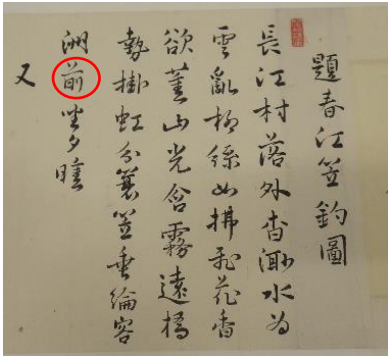 題春江笠釣圖
長江村落外杳渺水為
雲亂柳絲如拂飛花香
欲薰山光含霧遠橋
勢掛虹分蓑笠垂綸客
洲前坐夕曛
又